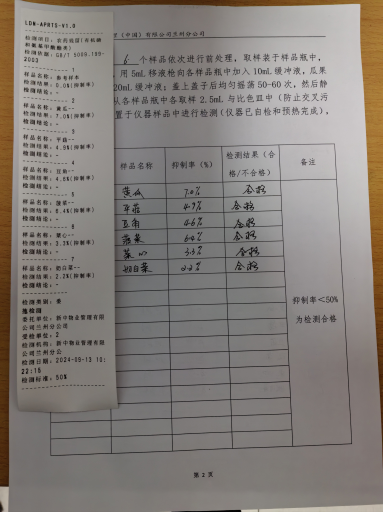 LDM-APRTS-V1.0
检测依据：GB/T 5009.199-
2003
1
样品名称：参考样本
检测结果：0.0%(抑制率)
检测结论：-
2
样品名称：黄瓜--
检测结果：7.0%(抑制率)
检测结论：-
3
样品名称：平菇--
检测结果：4.9%(抑制率)
检测结论：-
4
样品名称：豆角--
检测结果：4.6%(抑制率)
检测结论：-
5
样品名称：菠菜--
检测结果：6.4%(抑制率)
检测结论：-
6
样品名称：菜心--
检测结果：3.3%(抑制率)
检测结论：-
7
样品名称：奶白菜--
检测结果：2.2%(抑制率)
检测结论：-
检测类别：委
托检测
委托单位：新中物业管理有限
公司兰州分公司
受检单位：2
检测机构：新中物业管理有限
公司兰州分公
检测日期：2024-09-13 10:
22:15
检测标准：50%
（中国）有限公司兰州分公司
6 个样品依次进行前处理，取样装于样品瓶中，
用 5mL 移液枪向各样品瓶中加入 10mL 缓冲液，瓜果
20mL 缓冲液；盖上盖子后均匀摇荡 50-60 次，然后静
从各样品瓶中各取样 2.5mL 与比色皿中（防止交叉污
置于仪器样品中进行检测（仪器已自检和预热完成），
样品名称 抑制率（%） 检测结果（合格/不合格） 备注
黄瓜 7.0% 合格
平菇 4.9% 合格
豆角 4.6% 合格
菠菜 6.4% 合格
菜心 3.3% 合格
奶白菜 2.2% 合格
抑制率＜50%
为检测合格
第 2 页